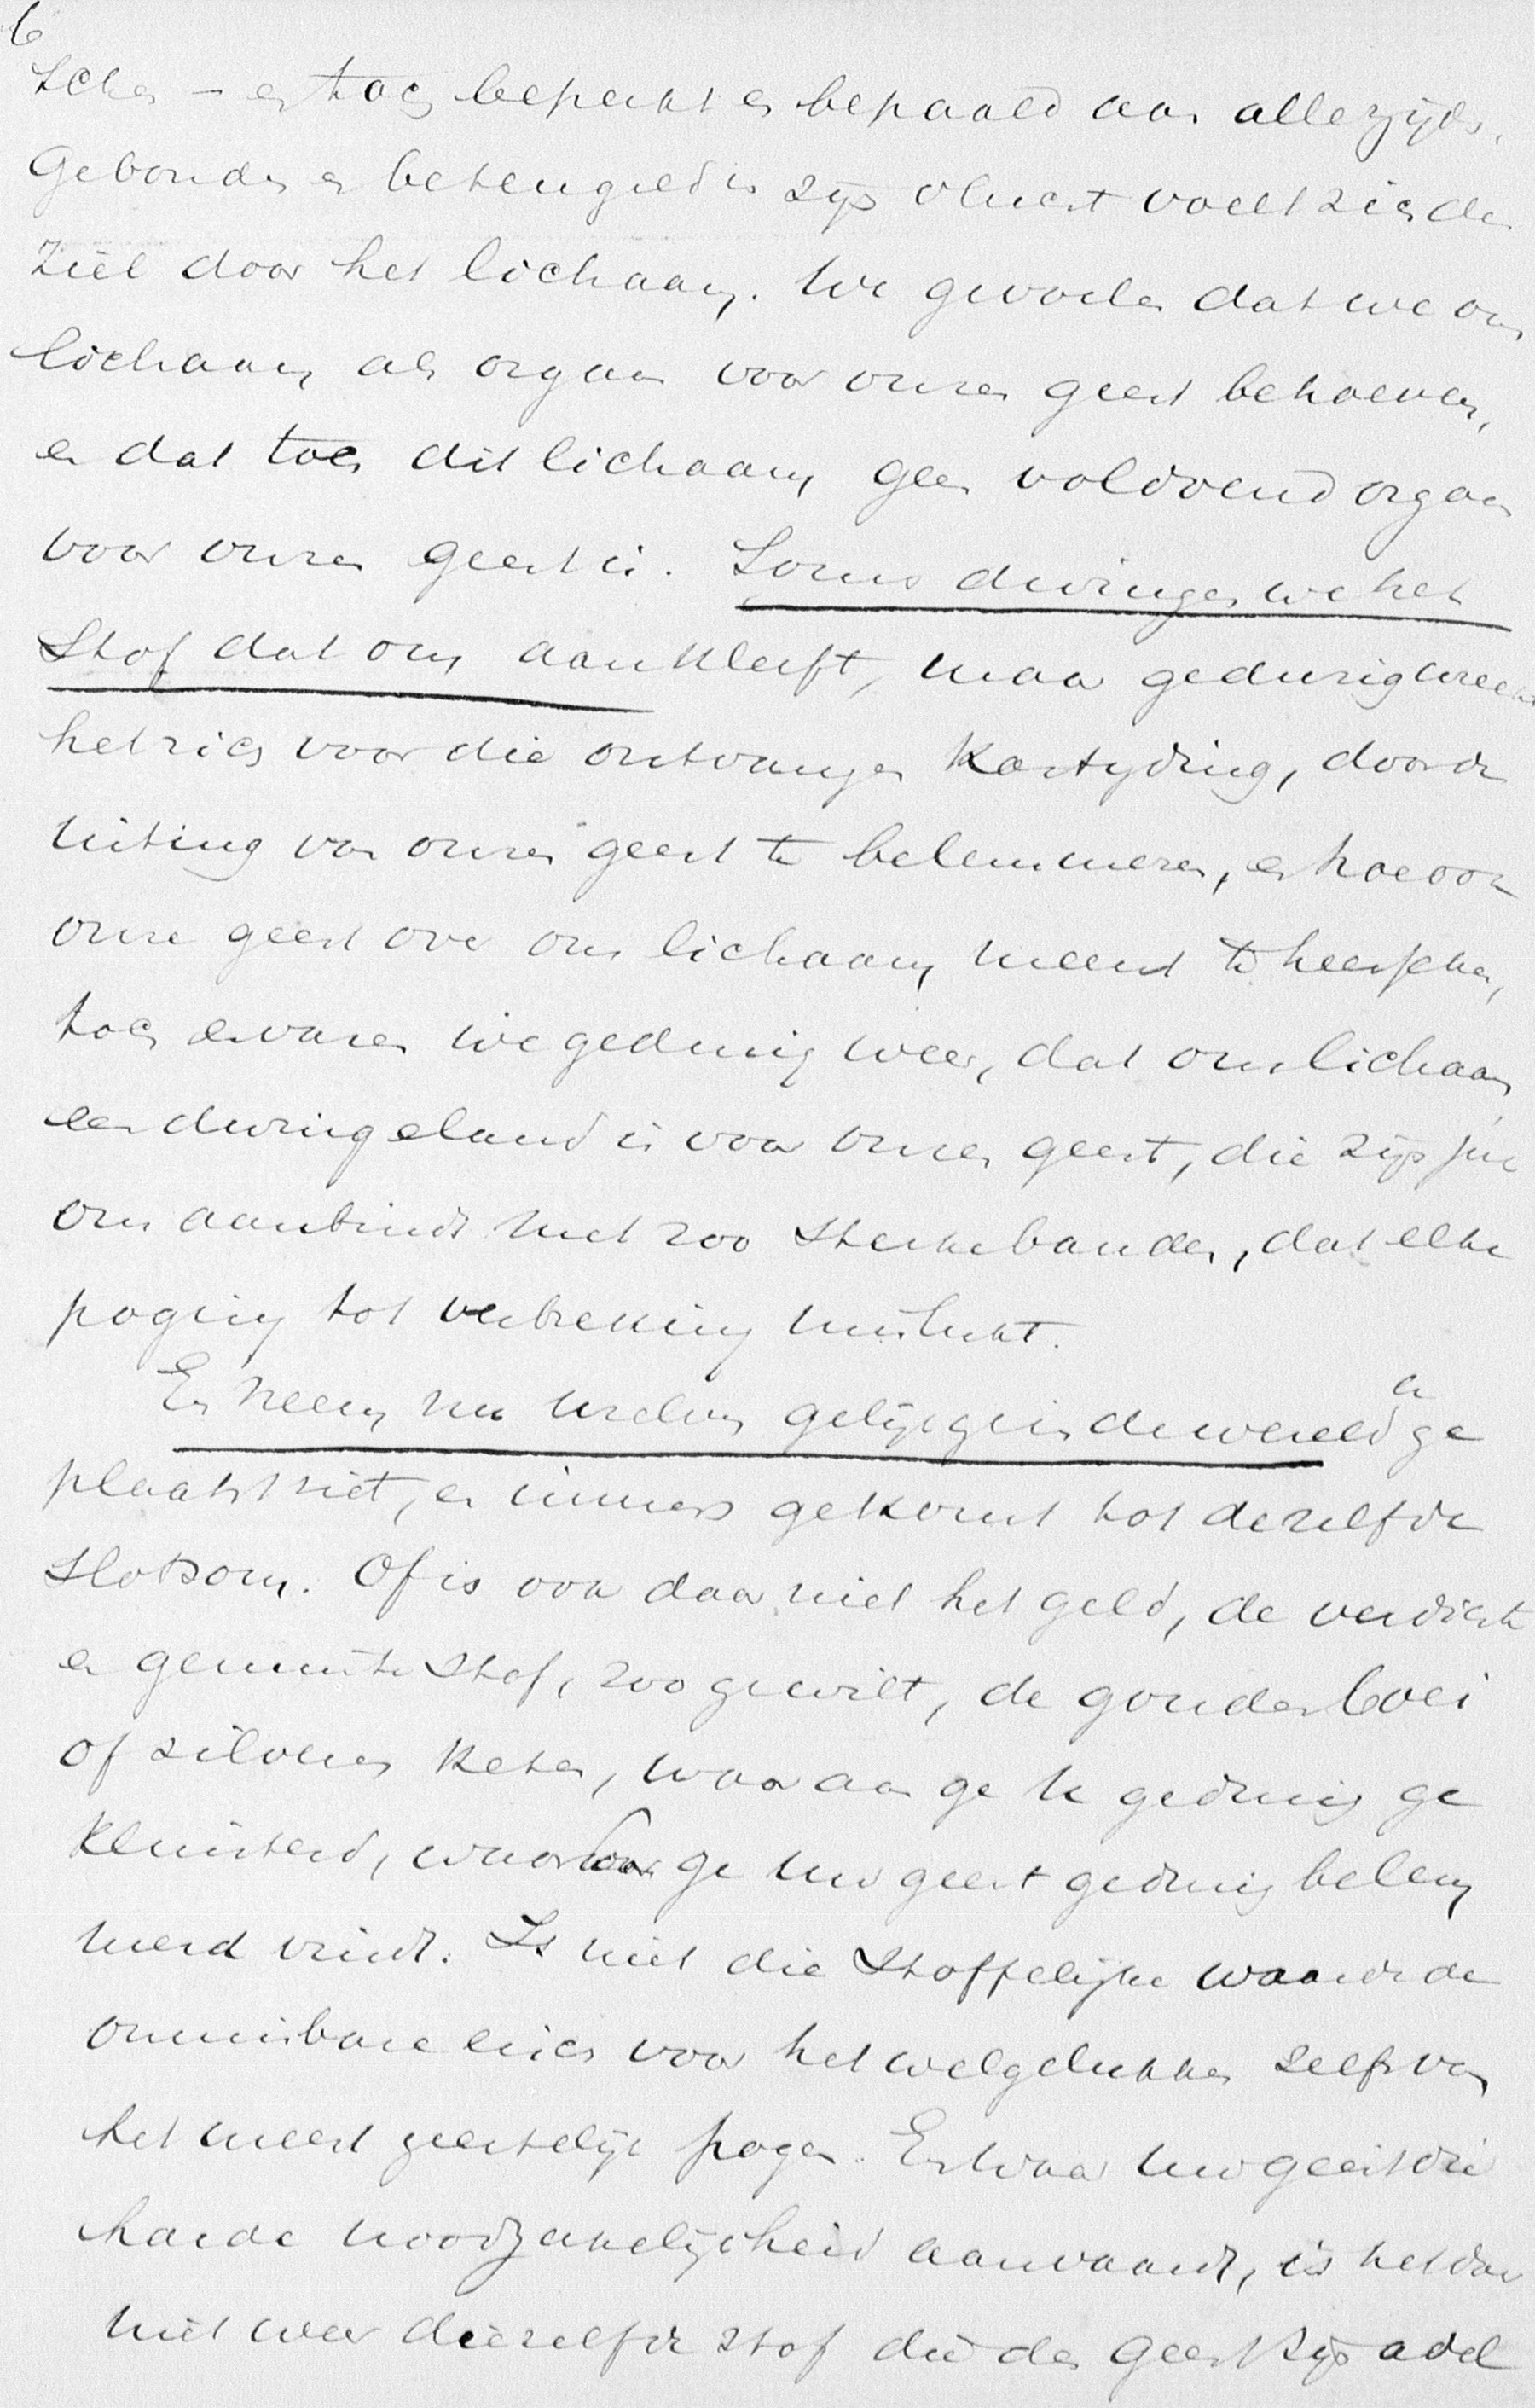 6
schen – en toch beperkt en bepaald aan alle zijden.
Gebonden en beteugeld in zijn vlucht voelt zich de
ziel door het lichaam. We gevoelen dat we ons
lichaam als orgaan voor onzen geest behoeven,
en dat toch dit lichaam geen voldoend orgaan
voor onzen geest is. Soms dwingen we het
stof dat ons aankleeft, maar gedurig wreekt
het zich voor die ontvangen kastyding, door de
uiting van onzen geest te belemmeren, en hoe ook
onze geest over ons lichaam meent te heerschen,
toch ervaren we gedurig weer, dat ons lichaam
een dwingeland is voor onzen geest, die zijn juk
ons aanbindt met zoo sterke banden, dat elke
poging tot verbreking mislukt.
En neem nu uw leven gelijk ge in de wereld er ge
plaatst zijt, en immers ge komt tot dezelfde
slotsom. Of is ook daar niet het geld, de verdichte
en gemunte stof, zoo ge wilt, de gouden boei
of zilveren keten, waaraan ge u gedurig ge
kluisterd, waardoor ge uw geest gedurig belem
merd vindt. Is niet die stoffelijke waarde de
onmisbare eisch voor het welgelukken zelfs van
het meest geestelijk pogen. En waar uw geest die
harde noodzakelijkheid aanvaardt, is het dan
niet weer diezelfde stof die den geest zijn adel